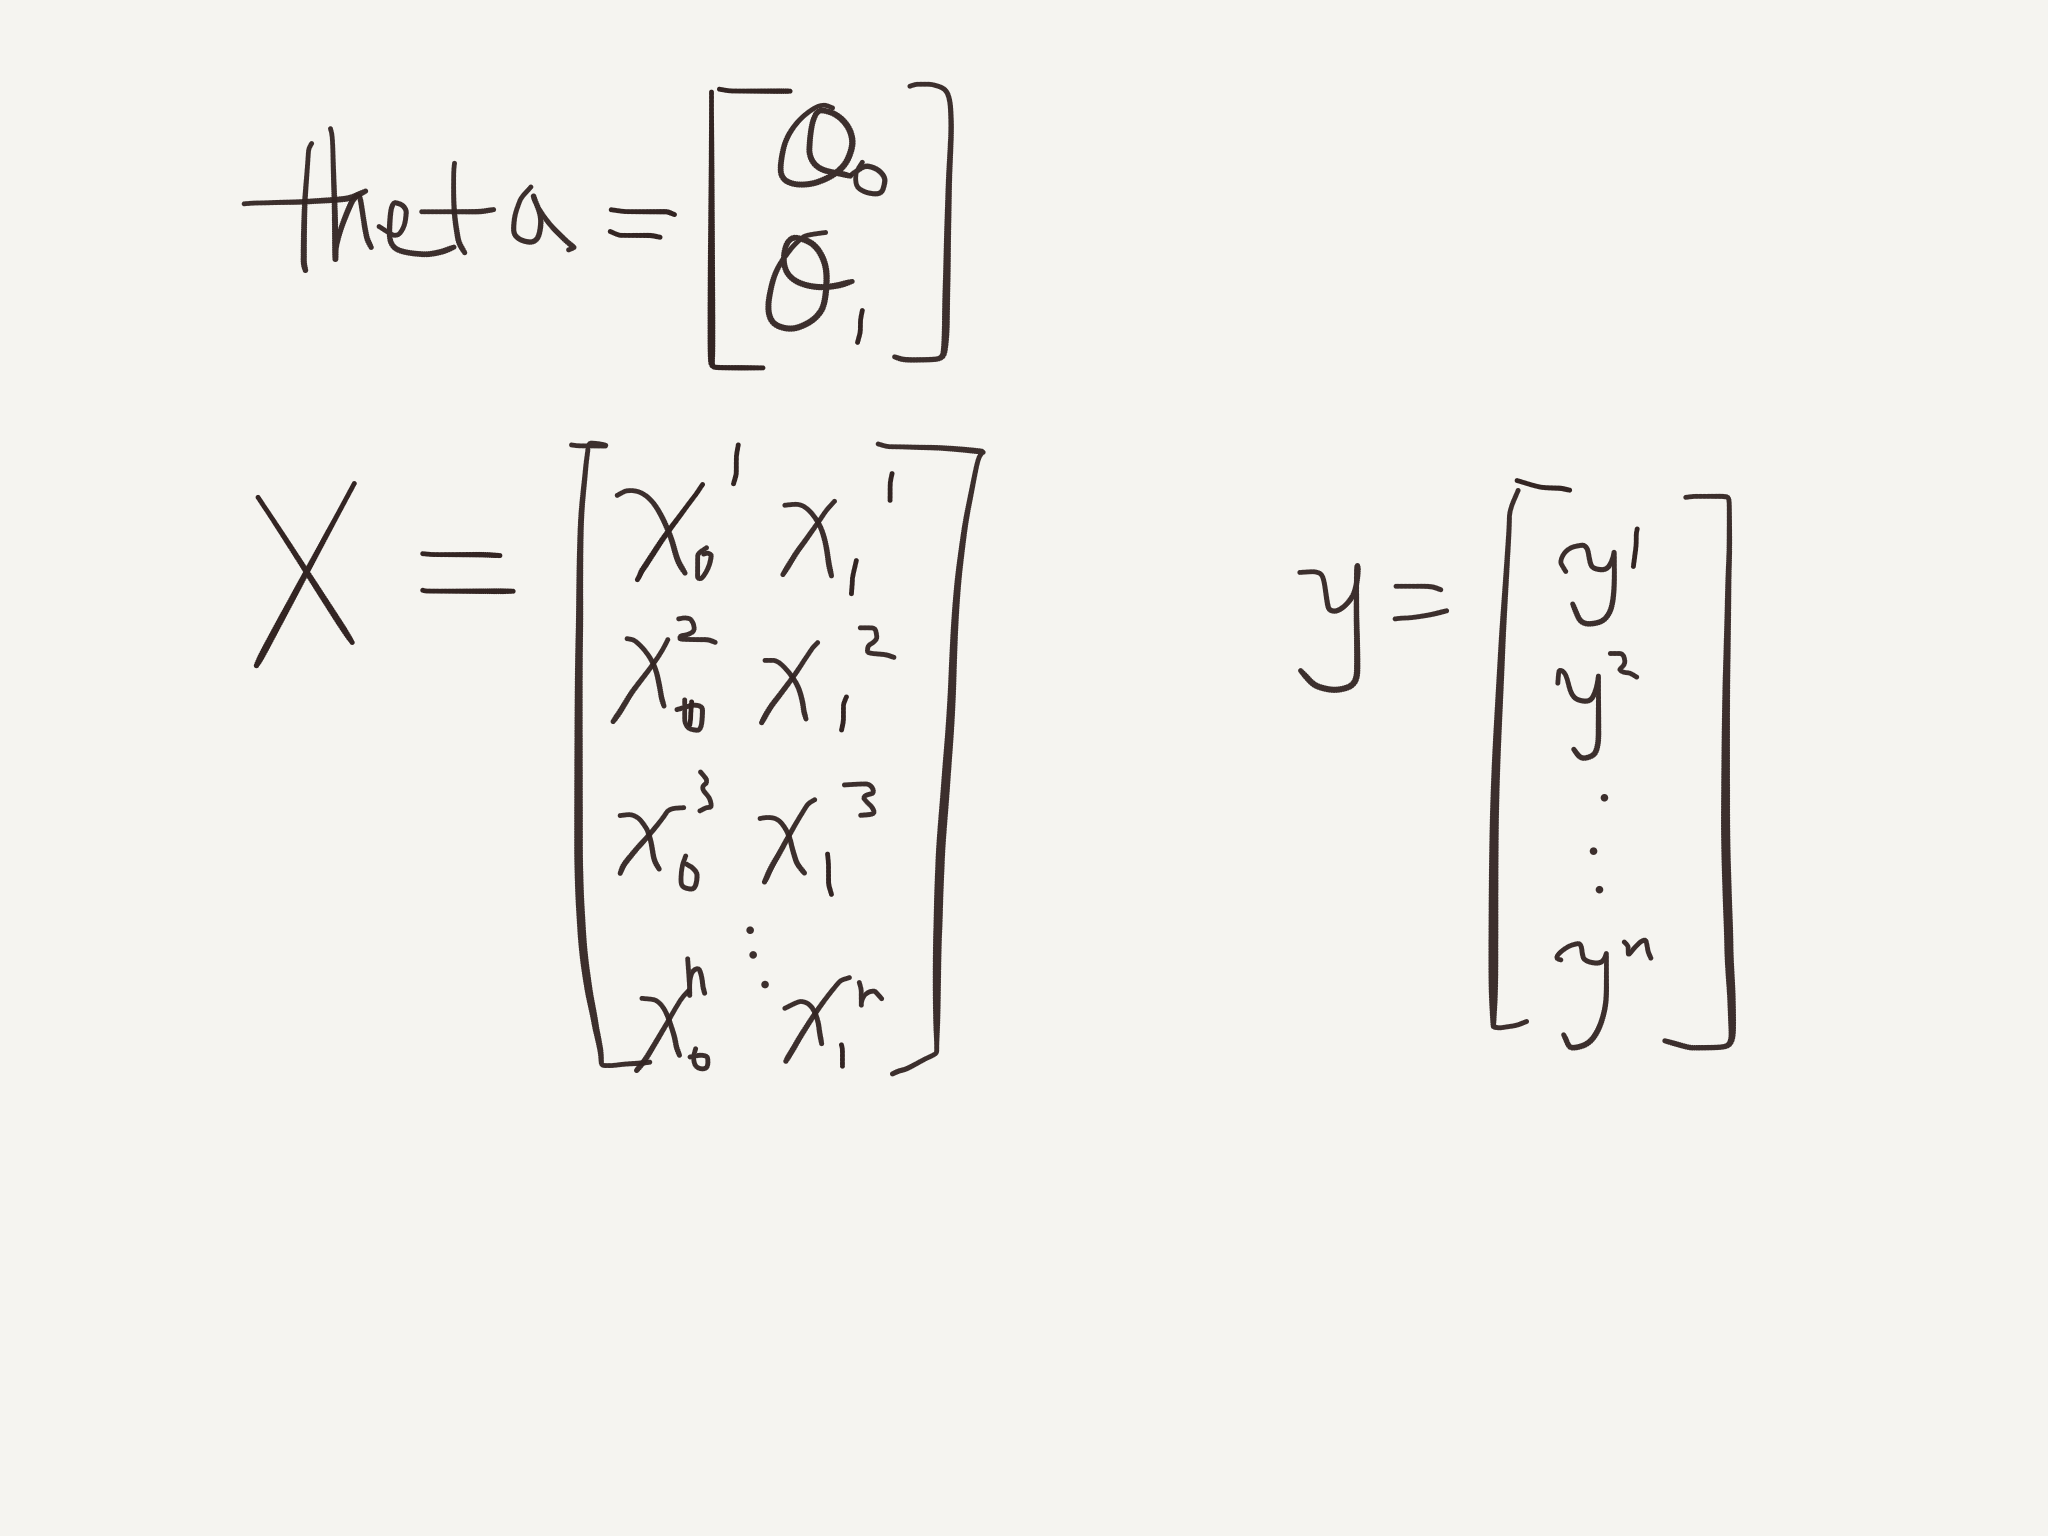 theta = [θ₀
θ₁]
X = [x₀¹ x₁¹
x₀² x₁²
x₀³ x₁³
⋮
x₀ⁿ x₁ⁿ]
y = [y¹
y²
⋮
yⁿ]